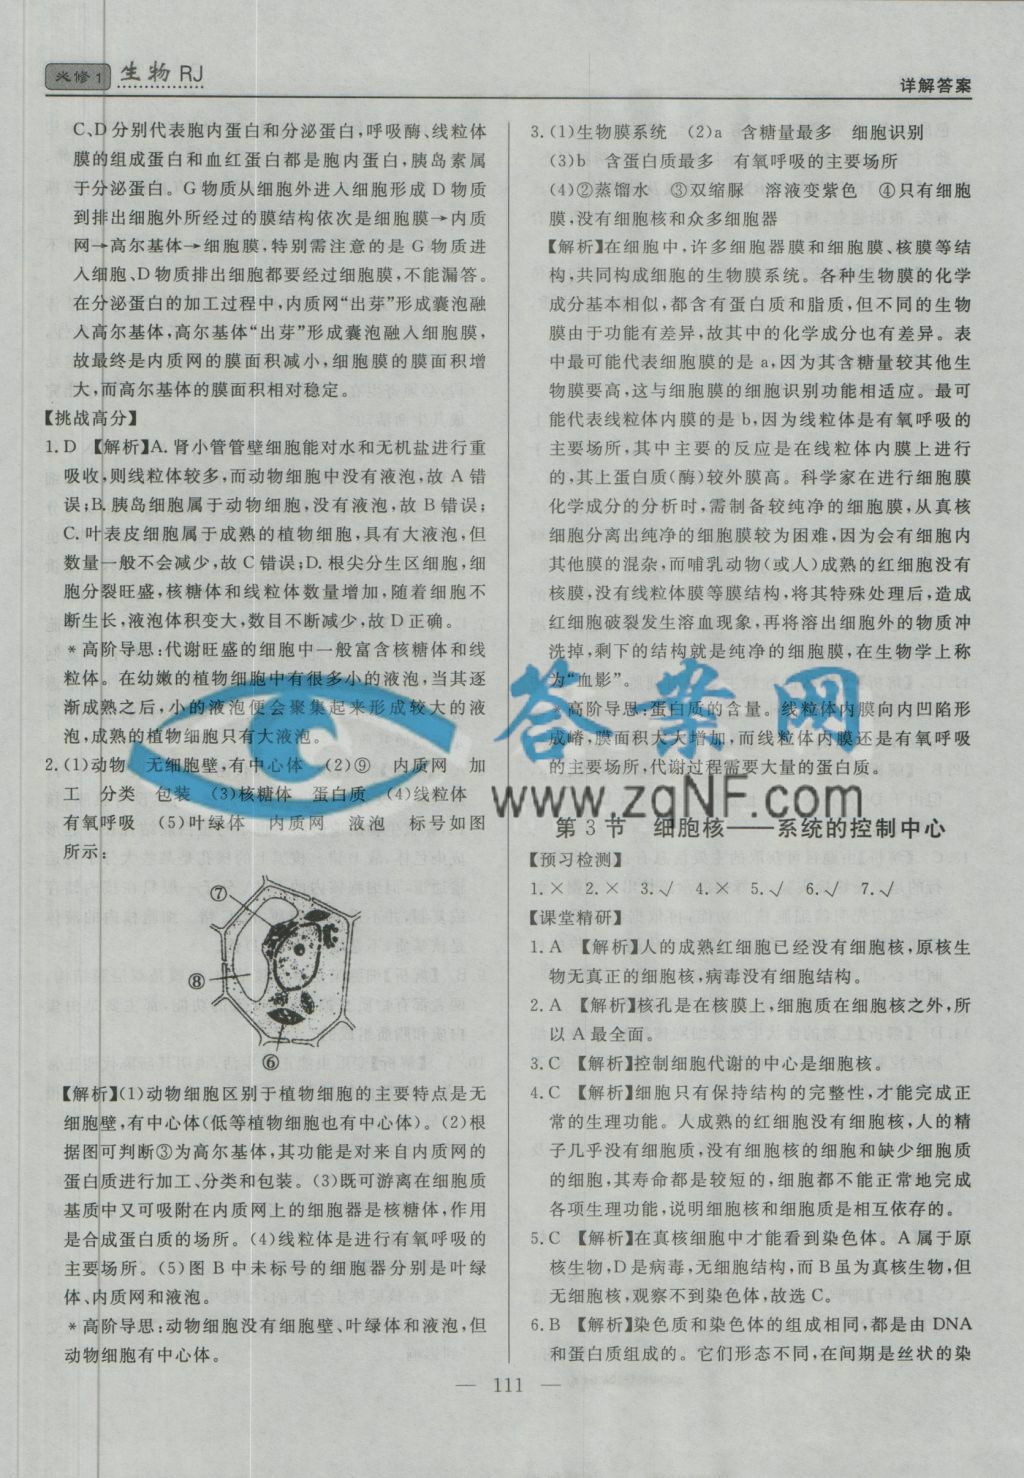 必修1 生物 RJ
详解答案
C、D分别代表胞内蛋白和分泌蛋白,呼吸酶、线粒体
膜的组成蛋白和血红蛋白都是胞内蛋白,胰岛素属
于分泌蛋白。G物质从细胞外进入细胞形成D物质
到排出细胞外所经过的膜结构依次是细胞膜→内质
网→高尔基体→细胞膜,特别需注意的是G物质进
入细胞、D物质排出细胞都要经过细胞膜,不能漏答。
在分泌蛋白的加工过程中,内质网“出芽”形成囊泡融
入高尔基体,高尔基体“出芽”形成囊泡融入细胞膜,
故最终是内质网的膜面积减小,细胞膜的膜面积增
大,而高尔基体的膜面积相对稳定。
【挑战高分】
1. D 【解析】A. 肾小管管壁细胞能对水和无机盐进行重
吸收,则线粒体较多,而动物细胞中没有液泡,故A错
误;B. 胰岛细胞属于动物细胞,没有液泡,故B错误;
C. 叶表皮细胞属于成熟的植物细胞,具有大液泡,但
数量一般不会减少,故C错误;D. 根尖分生区细胞,细
胞分裂旺盛,核糖体和线粒体数量增加,随着细胞不
断生长,液泡体积变大,数目不断减少,故D正确。
*高阶导思:代谢旺盛的细胞中一般富含核糖体和线
粒体。在幼嫩的植物细胞中有很多小的液泡,当其逐
渐成熟之后,小的液泡便会聚集起来形成较大的液
泡,成熟的植物细胞只有大液泡。
2. (1)动物 无细胞壁,有中心体 (2)⑨ 内质网 加
工 分类 包装 (3)核糖体 蛋白质 (4)线粒体
有氧呼吸 (5)叶绿体 内质网 液泡 标号如图
所示:
⑦
⑧
⑥
【解析】(1)动物细胞区别于植物细胞的主要特点是无
细胞壁,有中心体(低等植物细胞也有中心体)。(2)根
据图可判断③为高尔基体,其功能是对来自内质网的
蛋白质进行加工、分类和包装。(3)既可游离在细胞质
基质中又可吸附在内质网上的细胞器是核糖体,作用
是合成蛋白质的场所。(4)线粒体是进行有氧呼吸的
主要场所。(5)图B中未标号的细胞器分别是叶绿
体、内质网和液泡。
*高阶导思:动物细胞没有细胞壁、叶绿体和液泡,但
动物细胞有中心体。
3. (1)生物膜系统 (2)a 含糖量最多 细胞识别
(3)b 含蛋白质最多 有氧呼吸的主要场所
(4)②蒸馏水 ③双缩脲 溶液变紫色 ④只有细胞
膜,没有细胞核和众多细胞器
【解析】在细胞中,许多细胞器膜和细胞膜、核膜等结
构,共同构成细胞的生物膜系统。各种生物膜的化学
成分基本相似,都含有蛋白质和脂质,但不同的生物
膜由于功能有差异,故其中的化学成分也有差异。表
中最可能代表细胞膜的是a,因为其含糖量较其他生
物膜要高,这与细胞膜的细胞识别功能相适应。最可
能代表线粒体内膜的是b,因为线粒体是有氧呼吸的
主要场所,其中主要的反应是在线粒体内膜上进行
的,其上蛋白质(酶)较外膜高。科学家在进行细胞膜
化学成分的分析时,需制备较纯净的细胞膜,从真核
细胞分离出纯净的细胞膜较为困难,因为会有细胞内
其他膜的混杂,而哺乳动物(或人)成熟的红细胞没有
核膜,没有线粒体膜等膜结构,将其特殊处理后,造成
红细胞破裂发生溶血现象,再将溶出细胞外的物质冲
洗掉,剩下的结构就是纯净的细胞膜,在生物学上称
为“血影”。
*高阶导思:蛋白质的含量。线粒体内膜向内凹陷形
成嵴,膜面积大大增加,而线粒体内膜还是有氧呼吸
的主要场所,代谢过程需要大量的蛋白质。
答案网
www.zqNF.com
第3节 细胞核——系统的控制中心
【预习检测】
1. × 2. × 3. √ 4. × 5. √ 6. √ 7. √
【课堂精研】
1. A 【解析】人的成熟红细胞已经没有细胞核,原核生
物无真正的细胞核,病毒没有细胞结构。
2. A 【解析】核孔是在核膜上,细胞质在细胞核之外,所
以A最全面。
3. C 【解析】控制细胞代谢的中心是细胞核。
4. C 【解析】细胞只有保持结构的完整性,才能完成正
常的生理功能。人成熟的红细胞没有细胞核,人的精
子几乎没有细胞质,没有细胞核的细胞和缺少细胞质
的细胞,其寿命都是较短的,细胞都不能正常地完成
各项生理功能,说明细胞核和细胞质是相互依存的。
5. C 【解析】在真核细胞中才能看到染色体。A属于原
核生物,D是病毒,无细胞结构,而B虽为真核生物,但
无细胞核,观察不到染色体,故选C。
6. B 【解析】染色质和染色体的组成相同,都是由DNA
和蛋白质组成的。它们形态不同,在间期是丝状的染
— 111 —